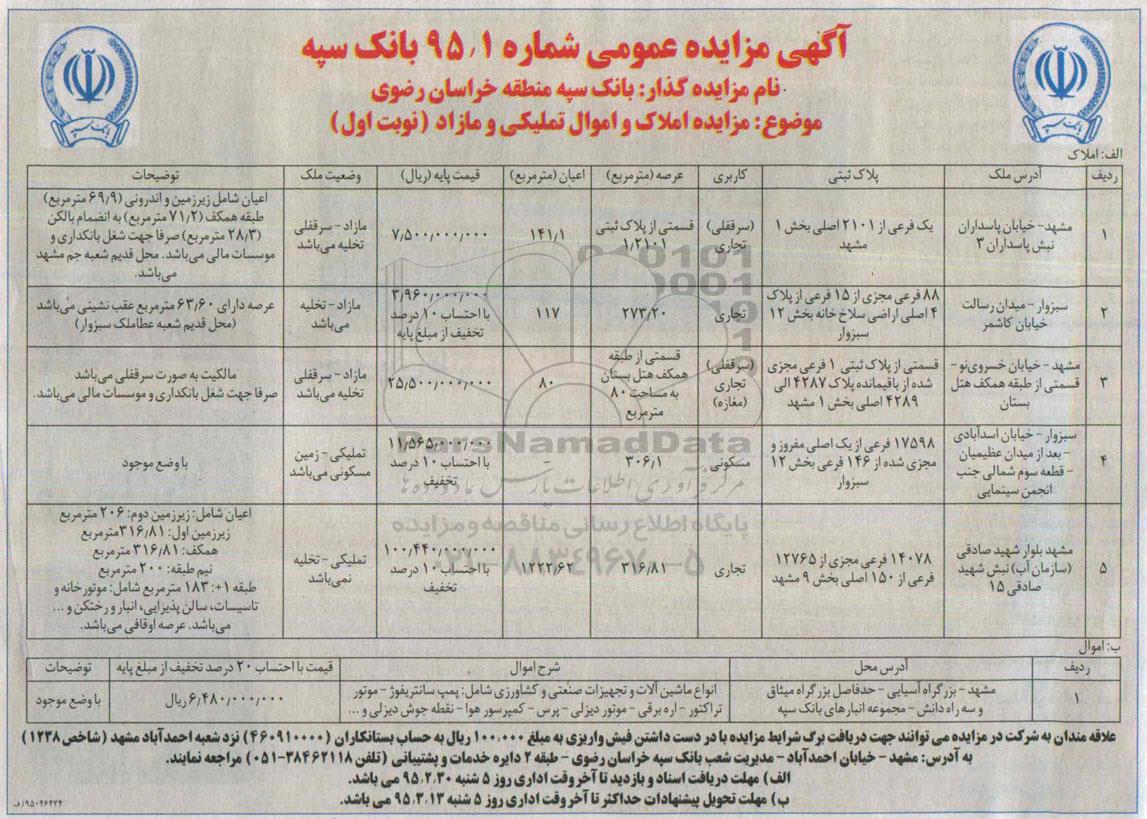 آگهی مزایده عمومی شماره ۹۵٫۱ بانک سپه
نام مزایده گذار: بانک سپه منطقه خراسان رضوی
موضوع: مزایده املاک و اموال تملیکی و مازاد (نوبت اول)
بانک سپه
بانک سپه
الف: املاک
ردیف آدرس ملک پلاک ثبتی کاربری عرصه (مترمربع) اعیان (مترمربع) قیمت پایه (ریال) وضعیت ملک توضیحات
۱
مشهد- خیابان پاسداران
نبش پاسداران ۳
یک فرعی از ۲۱۰۱ اصلی بخش ۱
مشهد
(سرقفلی)
تجاری
قسمتی از پلاک ثبتی
۱٫۲۱۰۱
۱۴۱٫۱
۷٫۵۰۰٫۰۰۰٫۰۰۰
مازاد- سرقفلی
تخلیه می‌باشد
اعیان شامل زیرزمین و اندرونی (۶۹٫۹ مترمربع)
طبقه همکف (۷۱٫۲ مترمربع) به انضمام بالکن
(۲۸٫۳ مترمربع) صرفا جهت شغل بانکداری و
موسسات مالی می‌باشد. محل قدیم شعبه جم مشهد
می‌باشد.
۲
سبزوار - میدان رسالت
خیابان کاشمر
۸۸ فرعی مجزی از ۱۵ فرعی از پلاک
۴ اصلی اراضی سلاخ خانه بخش ۱۲
سبزوار
تجاری
۲۷۳٫۲۰
۱۱۷
۳٫۹۶۰٫۰۰۰٫۰۰۰
با احتساب ۱۰ درصد
تخفیف از مبلغ پایه
مازاد - تخلیه
می‌باشد
عرصه دارای ۶۳٫۶۰ مترمربع عقب نشینی می‌باشد
(محل قدیم شعبه عطاملک سبزوار)
۳
مشهد - خیابان خسروی‌نو -
قسمتی از طبقه همکف هتل
بستان
قسمتی از پلاک ثبتی ۱ فرعی مجزی
شده از باقیمانده پلاک ۴۲۸۷ الی
۴۲۸۹ اصلی بخش ۱ مشهد
(سرقفلی)
تجاری
(مغازه)
قسمتی از طبقه
همکف هتل بستان
به مساحت ۸۰
مترمربع
۸۰
۲۵٫۵۰۰٫۰۰۰٫۰۰۰
مازاد - سرقفلی
تخلیه می‌باشد
مالکیت به صورت سرقفلی می‌باشد
صرفا جهت شغل بانکداری و موسسات مالی می‌باشد.
۴
سبزوار - خیابان اسدآبادی
- بعد از میدان عظیمیان
- قطعه سوم شمالی جنب
انجمن سینمایی
۱۷۵۹۸ فرعی از یک اصلی مفروز و
مجزی شده از ۱۴۶ فرعی بخش ۱۲
سبزوار
مسکونی
۳۰۶٫۱
-
۱۱٫۵۶۵٫۰۰۰٫۰۰۰
با احتساب ۱۰ درصد
تخفیف
تملیکی - زمین
مسکونی می‌باشد
با وضع موجود
۵
مشهد بلوار شهید صادقی
(سازمان آب) نبش شهید
صادقی ۱۵
۱۴۰۷۸ فرعی مجزی از ۱۲۷۶۵
فرعی از ۱۵۰ اصلی بخش ۹ مشهد
تجاری
۳۱۶٫۸۱
۱۲۲۲٫۶۲
۱۰۰٫۴۴۰٫۰۰۰٫۰۰۰
با احتساب ۱۰ درصد
تخفیف
تملیکی - تخلیه
نمی‌باشد
اعیان شامل: زیرزمین دوم: ۲۰۶ مترمربع
زیرزمین اول: ۳۱۶٫۸۱مترمربع
همکف: ۳۱۶٫۸۱ مترمربع
نیم طبقه: ۲۰۰ مترمربع
طبقه ۱+: ۱۸۳ مترمربع شامل: موتورخانه و
تاسیسات، سالن پذیرایی، انبار و رختکن و ...
می‌باشد. عرصه اوقافی می‌باشد.
ب: اموال
ردیف آدرس محل شرح اموال قیمت با احتساب ۲۰ درصد تخفیف از مبلغ پایه توضیحات
۱
مشهد - بزرگراه آسیایی - حدفاصل بزرگراه میثاق
و سه راه دانش - مجموعه انبارهای بانک سپه
انواع ماشین آلات و تجهیزات صنعتی و کشاورزی شامل: پمپ سانتریفوژ - موتور
تراکتور - اره برقی - موتور دیزلی - پرس - کمپرسور هوا - نقطه جوش دیزلی و ...
۶٫۴۸۰٫۰۰۰٫۰۰۰ ریال
با وضع موجود
علاقه مندان به شرکت در مزایده می توانند جهت دریافت برگ شرایط مزایده با در دست داشتن فیش واریزی به مبلغ ۱۰۰٫۰۰۰ ریال به حساب بستانکاران (۴۶۰۹۱۰۰۰۰) نزد شعبه احمدآباد مشهد (شاخص ۱۲۳۸)
به آدرس: مشهد - خیابان احمدآباد - مدیریت شعب بانک سپه خراسان رضوی - طبقه ۲ دایره خدمات و پشتیبانی (تلفن ۳۸۴۶۲۱۱۸-۰۵۱) مراجعه نمایند.
الف) مهلت دریافت اسناد و بازدید تا آخر وقت اداری روز ۵ شنبه ۹۵٫۲٫۳۰ می باشد.
ب) مهلت تحویل پیشنهادات حداکثر تا آخر وقت اداری روز ۵ شنبه ۹۵٫۳٫۱۳ می باشد.
۹۵۰۴۶۴۳۴/ف
ParsNamadData
مرکز فرآوری اطلاعات پارس نماد داده ها
پایگاه اطلاع رسانی مناقصه و مزایده
۰۲۱-۸۸۳۴۹۶۷۰-۵